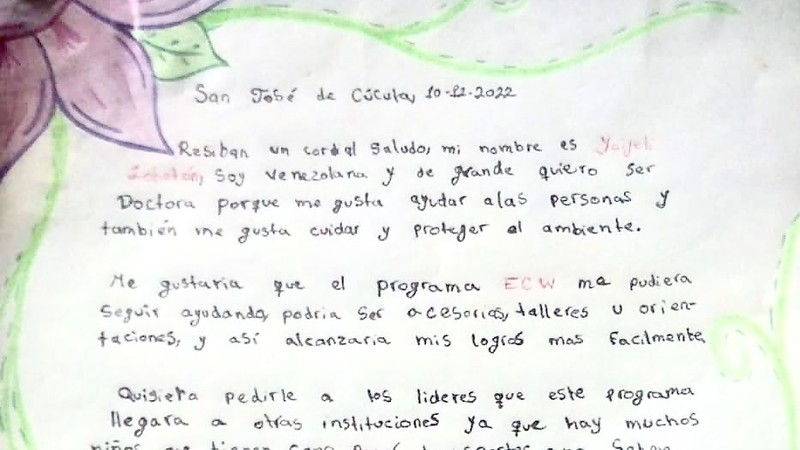 San José de Cúcuta, 10-12-2022
Resiban un cordial Saludo, mi nombre es
Soy venezolana y de grande quiero ser
Doctora porque me gusta ayudar alas personas y
también me gusta cuidar y proteger el ambiente.
Me gustaria que el programa ECW me pudiera
seguir ayudando, podria ser acesorias, talleres u orien-
taciones, y así alcanzaria mis logros mas facilmente.
Quisiera pedirle a los lideres que este programa
llegara a otras instituciones ya que hay muchos
niños que tienen